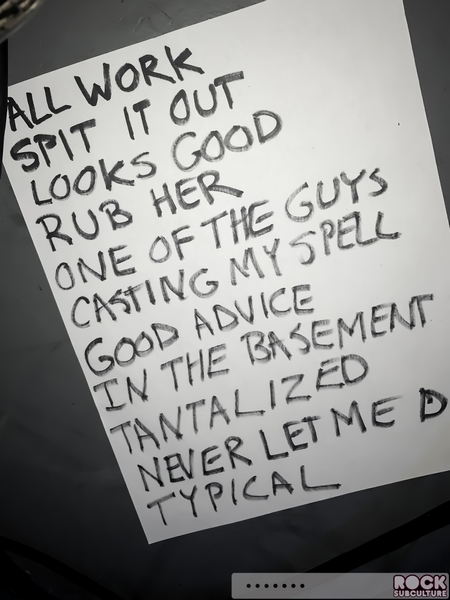 ALL WORK
SPIT IT OUT
LOOKS GOOD
RUB HER
ONE OF THE GUYS
CASTING MY SPELL
GOOD ADVICE
IN THE BASEMENT
TANTALIZED
NEVER LET ME D
TYPICAL
ROCK
SUBCULTURE